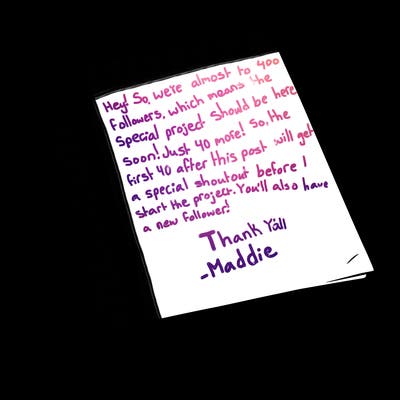 Hey! So, we're almost to 400
followers, which means the
special project should be here
soon! Just 40 more! So, the
first 40 after this post will get
a special shoutout before I
start the project. You'll also have
a new follower!
Thank Y'all
-Maddie